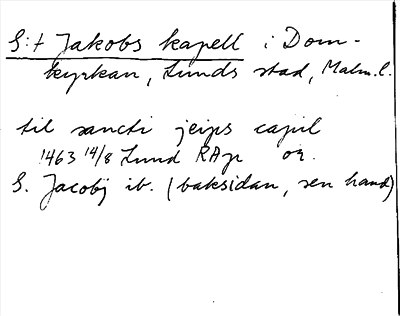 S:t Jakobs kapell i Dom-
kyrkan, Lunds stad, Malm.l.
til sancti jeips capil
1463 14/8 Lund RAp or.
S. Jacobj ib. (baksidan, sen hand)